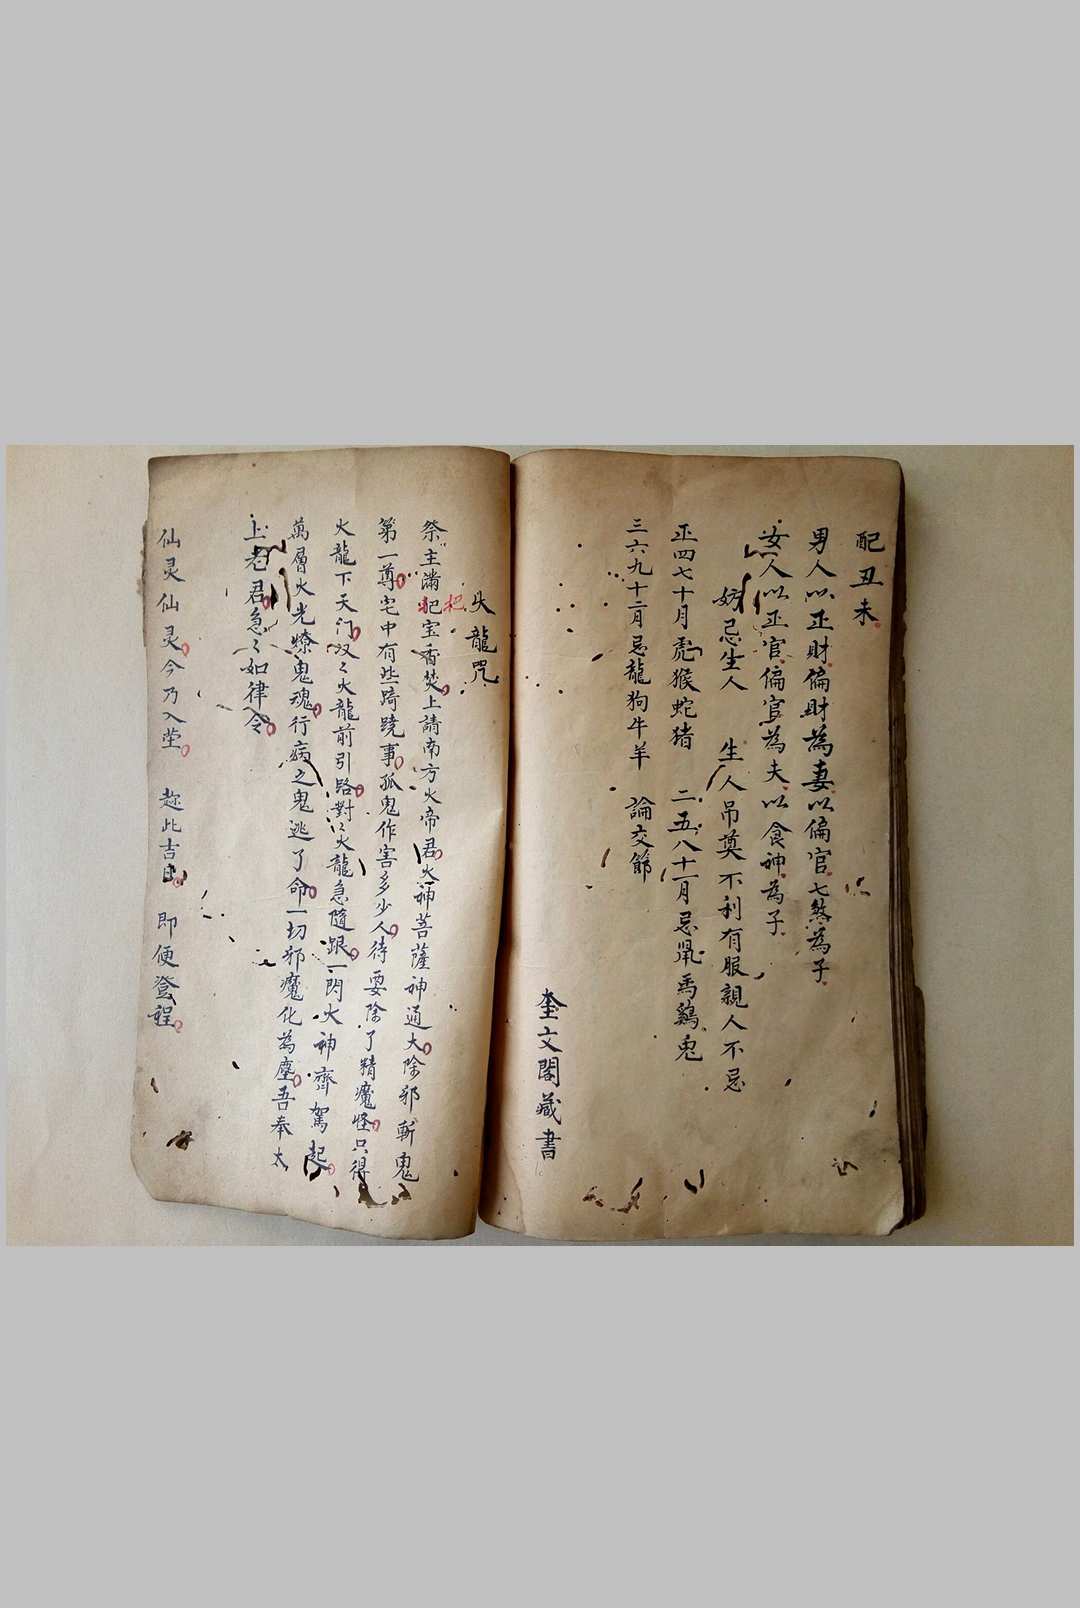 配丑未
男人以正財偏財為妻以偏官七煞為子
女人以正官偏官為夫以食神為子
妨忌生人 生人吊奠不利有服親人不忌
正四七十月虎猴蛇猪 二五八十一月忌鼠馬鷄兎
三六九十二月忌龍狗牛羊 論交節
奎文閣藏書
火龍咒
祭主滿把宝香焚上請南方火帝君火神菩薩神通大除邪斬鬼
把
第一尊宅中有些跷事孤鬼作害多少人待要除了精魔怪只得
火龍下天门双々火龍前引路對々火龍急隨跟一閃火神齊駕起
萬層火光燎鬼魂行病之鬼逃了命一切邪魔化為塵吾奉太
上老君急々如律令
仙灵仙灵今乃入茔 趂此吉日 即便登程